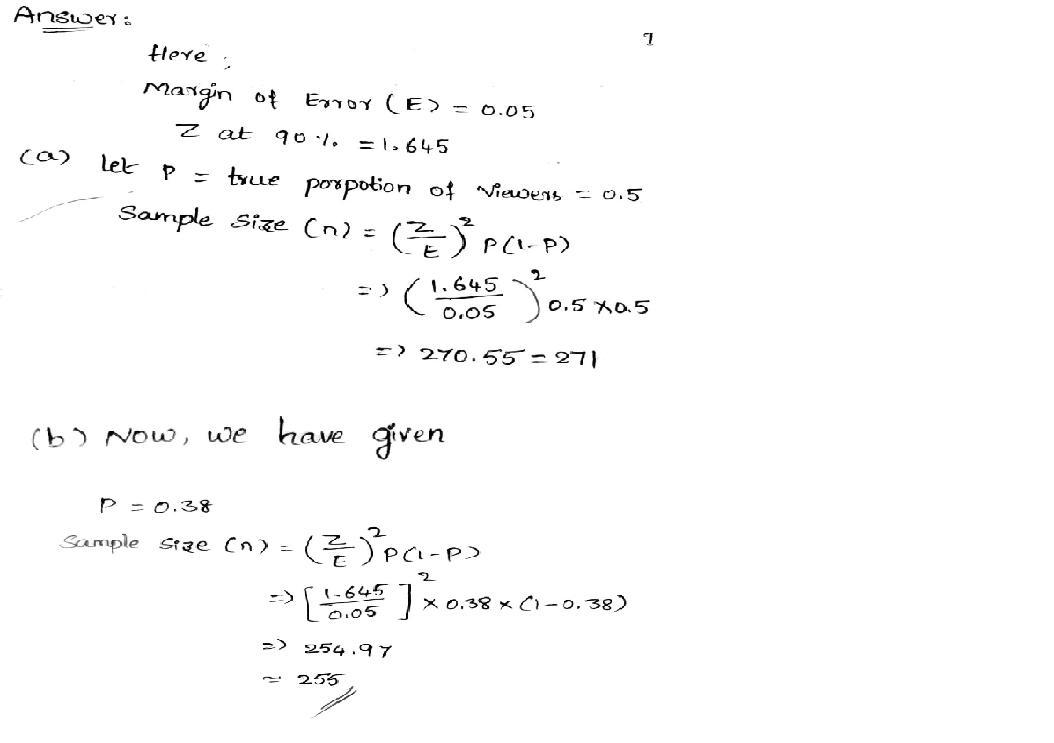 Answer:
7
Here ;
Margin of Error (E) = 0.05
Z at 90 % = 1.645
(a) let P = true porpotion of viewers = 0.5
Sample Size (n) = (Z/E)² P(1-P)
=> (1.645/0.05)² 0.5 x 0.5
=> 270.55 = 271
(b) Now, we have given
P = 0.38
Sample size (n) = (Z/E)² P(1-P)
=> [1.645/0.05]² x 0.38 x (1-0.38)
=> 254.97
≈ 255